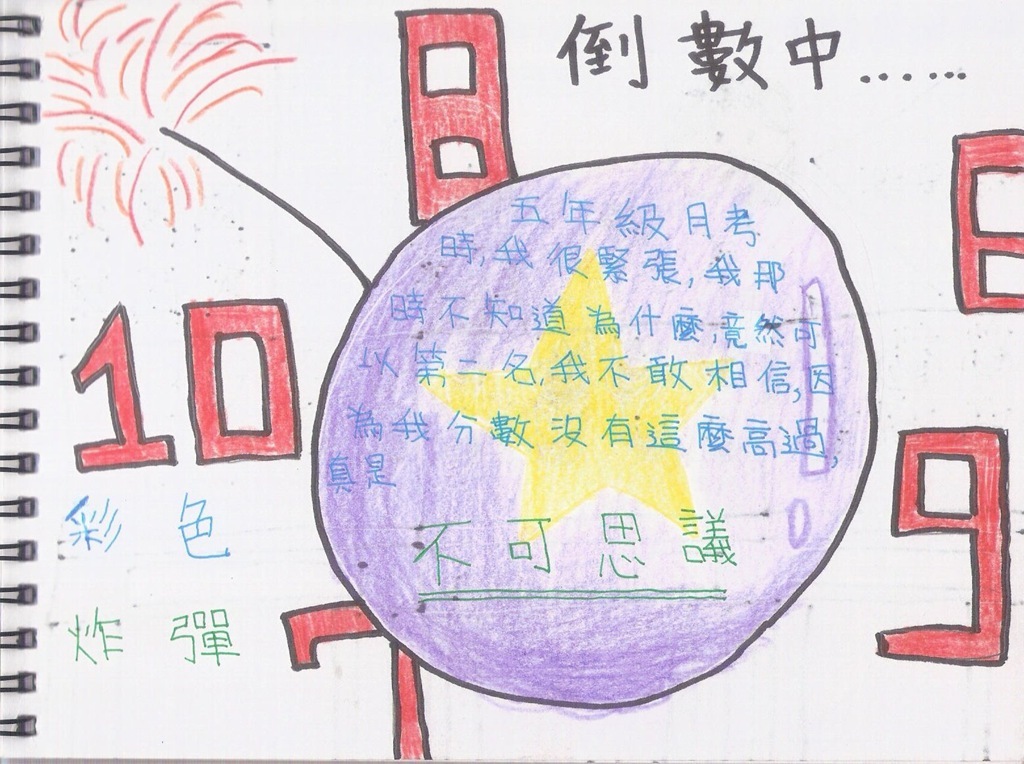 倒數中……
8
五年級月考
時,我很緊張,我那
時不知道為什麼,竟然可
以第二名,我不敢相信,因
為我分數沒有這麼高過,
真是
不可思議
10
彩色
炸彈
9
7